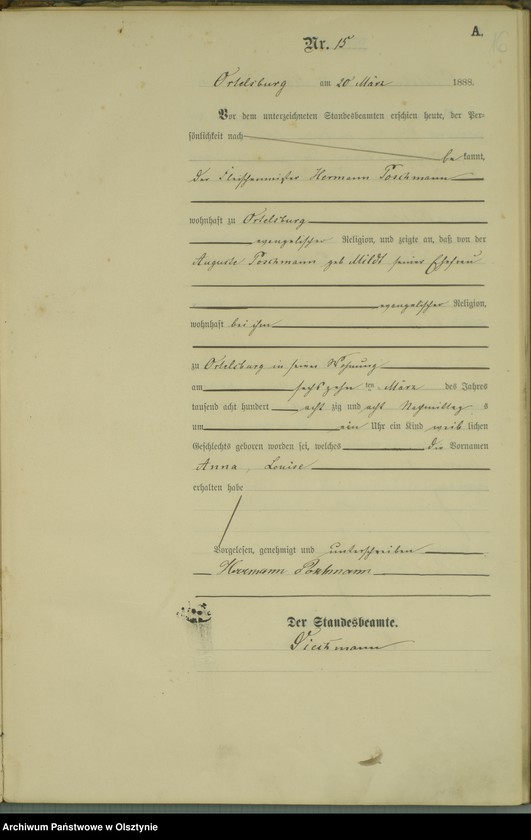 A.
Nr. 15
Ortelsburg am 20 März 1888.
Vor dem unterzeichneten Standesbeamten erschien heute, der Per-
sönlichkeit nach
be kannt,
der Fleischermeister Hermann Poschmann
wohnhaft zu Ortelsburg
evangelischer Religion, und zeigte an, daß von der
Auguste Poschmann geb Mildt seiner Ehefrau
evangelischer Religion,
wohnhaft bei ihm
zu Ortelsburg in seiner Wohnung
am sechszehn ten März des Jahres
tausend acht hundert acht zig und acht Nachmittag s
um ein Uhr ein Kind weib lichen
Geschlechts geboren worden sei, welches die Vornamen
Anna, Louise
erhalten habe
Vorgelesen, genehmigt und unterschrieben
Hermann Poschmann
Der Standesbeamte.
Archiwum Państwowe w Olsztynie